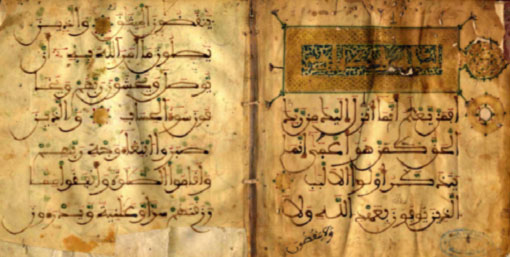 افمن يعلم انما انزل اليك من ربك
الحق كمن هو اعمى انما
يتذكر اولوا الالبب
الذين يوفون بعهد الله ولا
ولا ينقضون
ينقضون الميثق والذين
يصلون ما امر الله به ان
يوصل ويخشون ربهم ويخا
فون سوء الحساب والذين
صبروا ابتغاء وجه ربهم
واقاموا الصلوة وانفقوا مما
رزقنهم سرا وعلانية ويدرءون